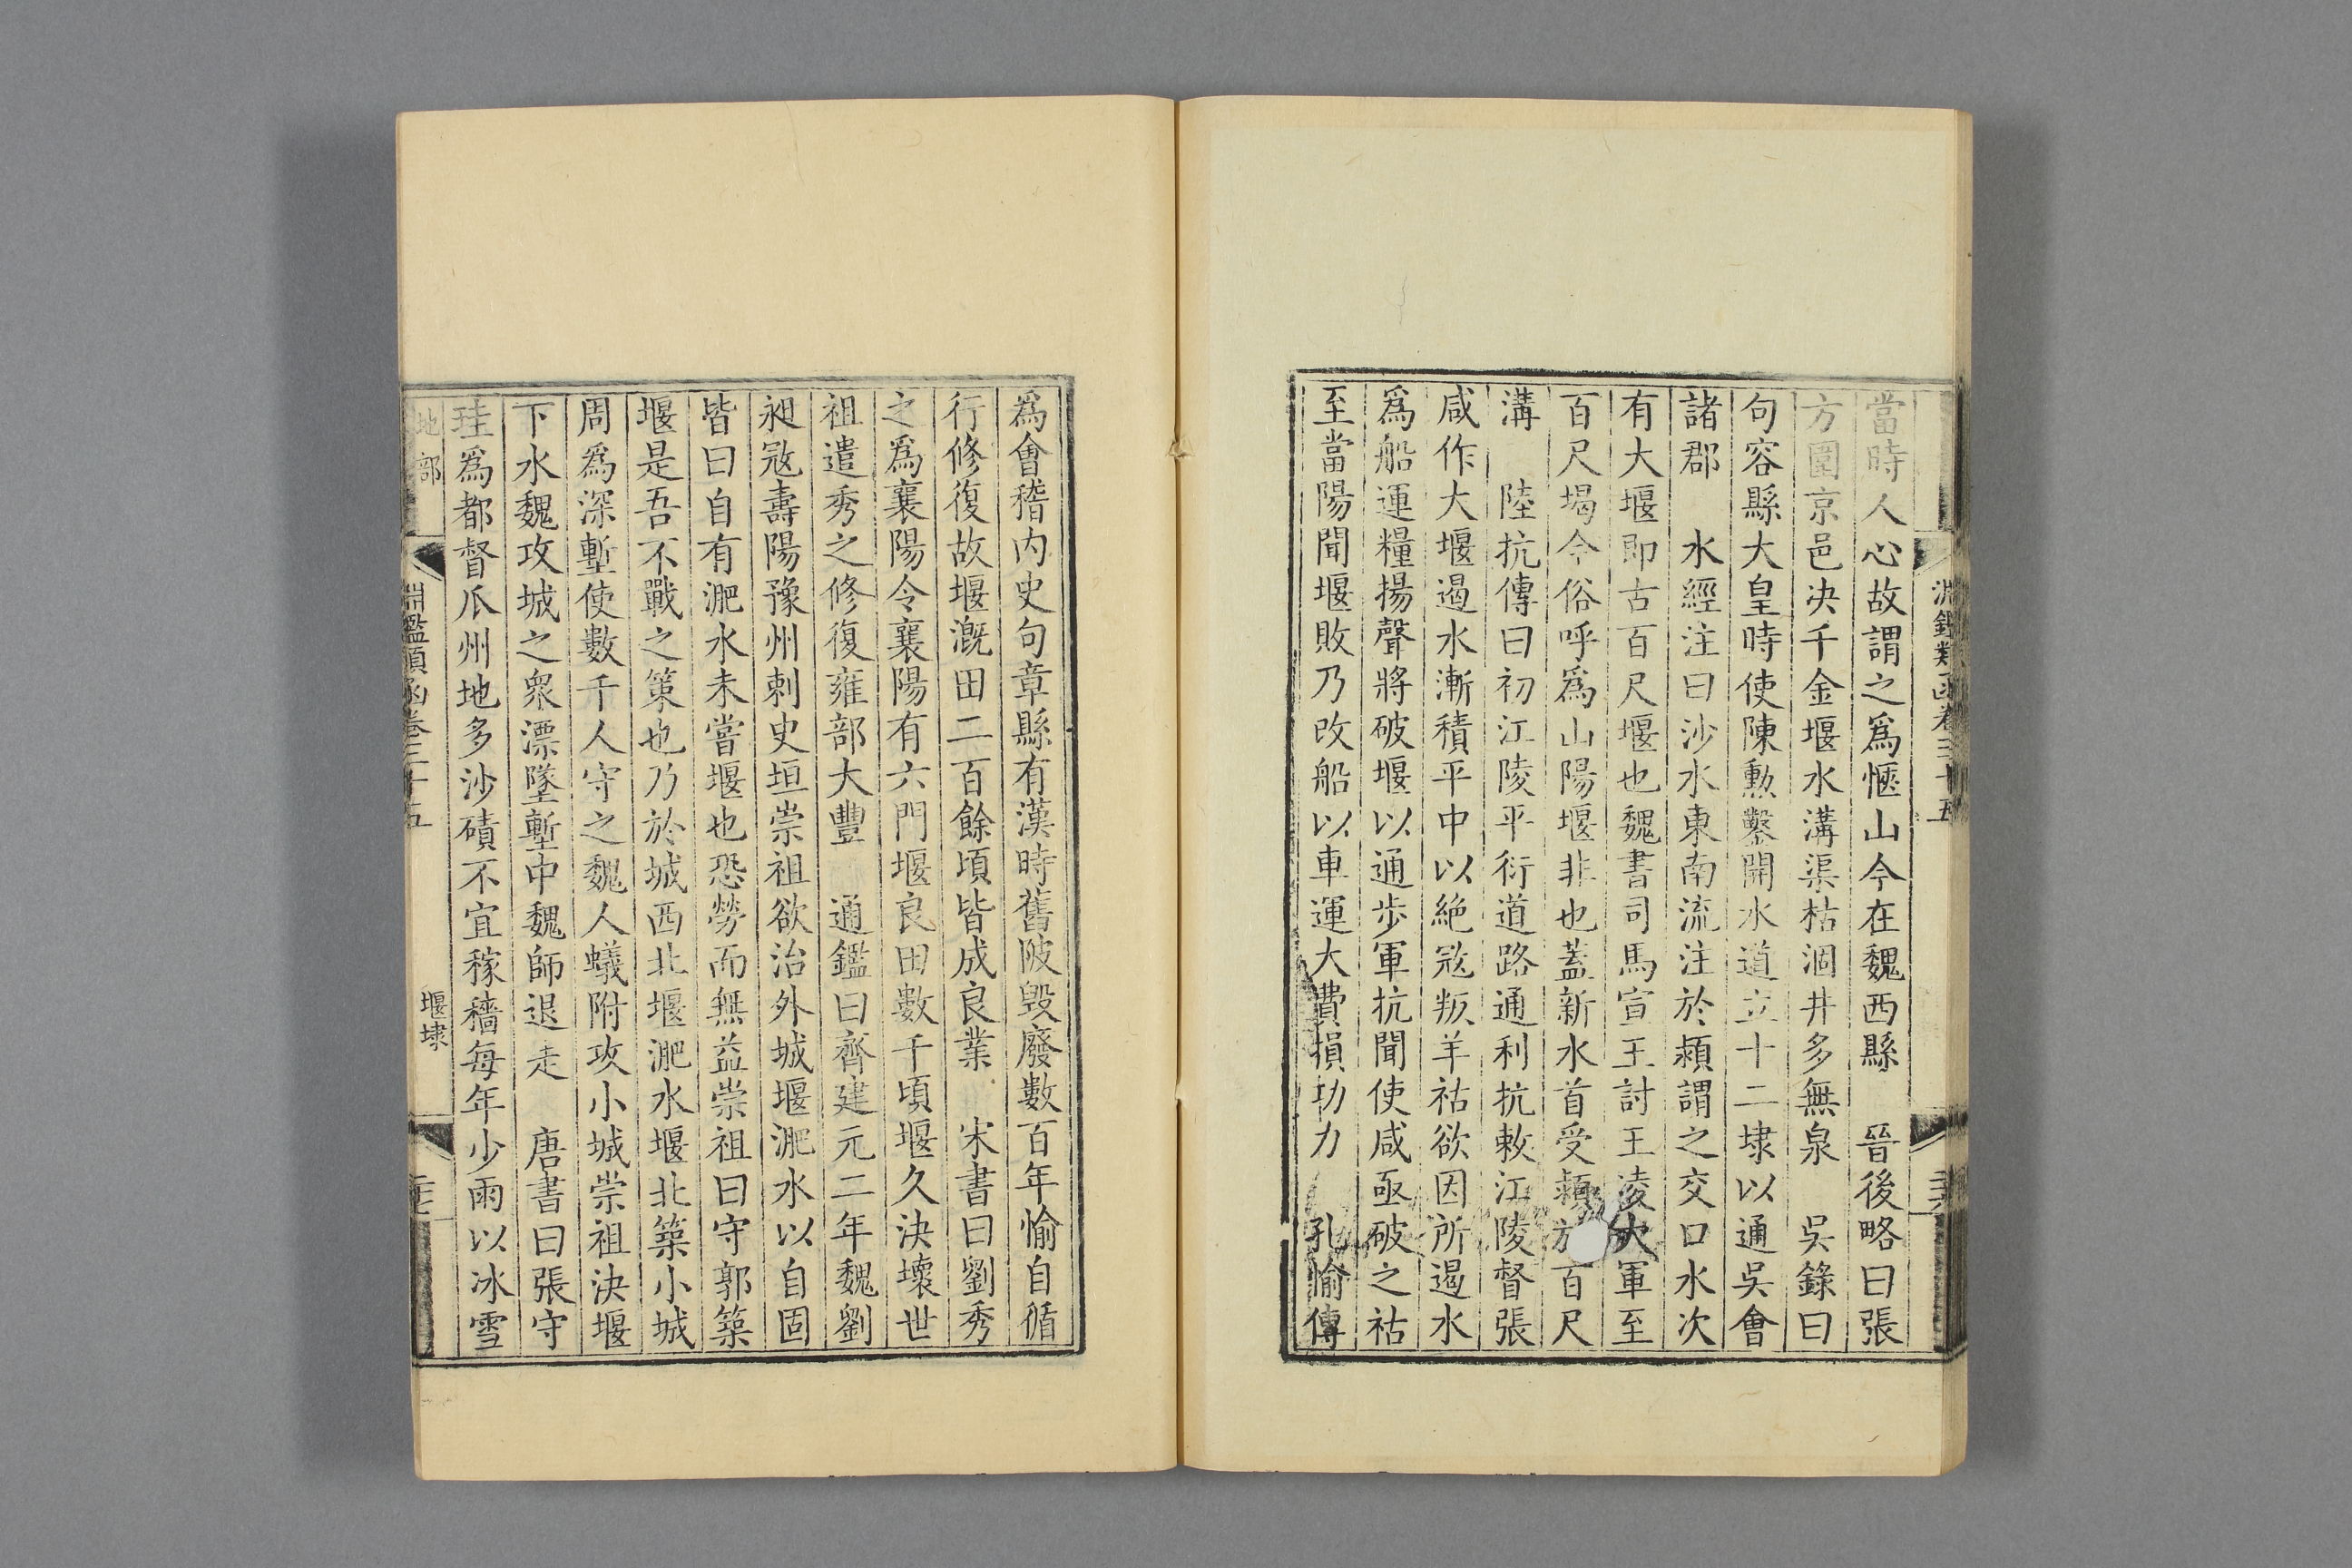 淵鑑類函卷三十五
當時人心故謂之爲愜山今在魏西縣　晉後略曰張
方圍京邑决千金堰水溝渠枯涸井多無泉　吳錄曰
句容縣大皇時使陳勲鑿開水道立十二埭以通吳會
諸郡　水經注曰沙水東南流注於潁謂之交口水次
有大堰即古百尺堰也魏書司馬宣王討王淩大軍至
百尺堨今俗呼爲山陽堰非也蓋新水首受潁於百尺
溝　陸抗傳曰初江陵平衍道路通利抗敕江陵督張
咸作大堰遏水漸積平中以絶宼叛羊祜欲因所遏水
爲船運糧揚聲將破堰以通歩軍抗聞使咸亟破之祜
至當陽聞堰敗乃改船以車運大費損功力　孔愉傳
爲會稽内史句章縣有漢時舊陂毁廢數百年愉自循
行修復故堰溉田二百餘頃皆成良業　宋書曰劉秀
之爲襄陽令襄陽有六門堰良田數千頃堰久決壞世
祖遣秀之修復雍部大豐　通鑑曰齊建元二年魏劉
昶宼壽陽豫州刺史垣崇祖欲治外城堰淝水以自固
皆曰自有淝水未嘗堰也恐勞而無益崇祖曰守郭築
堰是吾不戰之策也乃於城西北堰淝水堰北築小城
周爲深塹使數千人守之魏人蟻附攻小城崇祖決堰
下水魏攻城之衆漂墜塹中魏師退走　唐書曰張守
珪爲都督瓜州地多沙磧不宜稼穡每年少雨以冰雪
地部
淵鑑類函卷三十五
堰埭